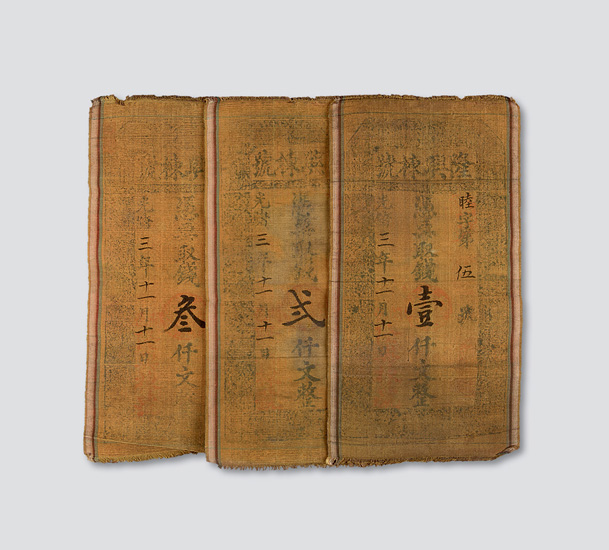 隆興棟號
睦字第伍號
憑票取錢壹仟文整
光緒三年十一月十一日
興棟號
憑票取錢弍仟文整
光緒三年十一月十一日
興棟號
憑票取錢叁仟文
光緒三年十一月十一日